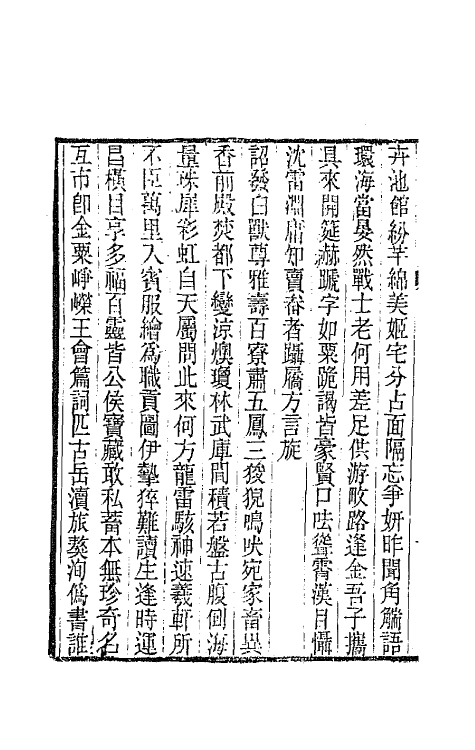 卉池館紛芊綿美姬宅分占面隔忘爭妍昨聞角觿語
環海當晏然戰士老何用差足供游畋路逢金吾子攜
具來開筵赫蹏字如粟跪謁皆豪賢口呿聳霄漢目懾
沈雷淵庸知賣畚者躡屩方言旋
詔發白獸尊雅壽百寮肅五鳳三狻猊鳴吠宛家畜異
香前殿焚都下變涼燠瓊林武庫間積若盤古腹回海
量珠犀彩虹自天屬問此來何方龍雷駭神速羲軒所
不臣萬里入賓服繪為職貢圖伊摯猝難讀生逢時運
昌橫目享多福百靈皆公侯寶藏敢私蓄本無珍奇名
互市卽金粟崢嶸王會篇詞匹古岳瀆旅獒洵偽書誰